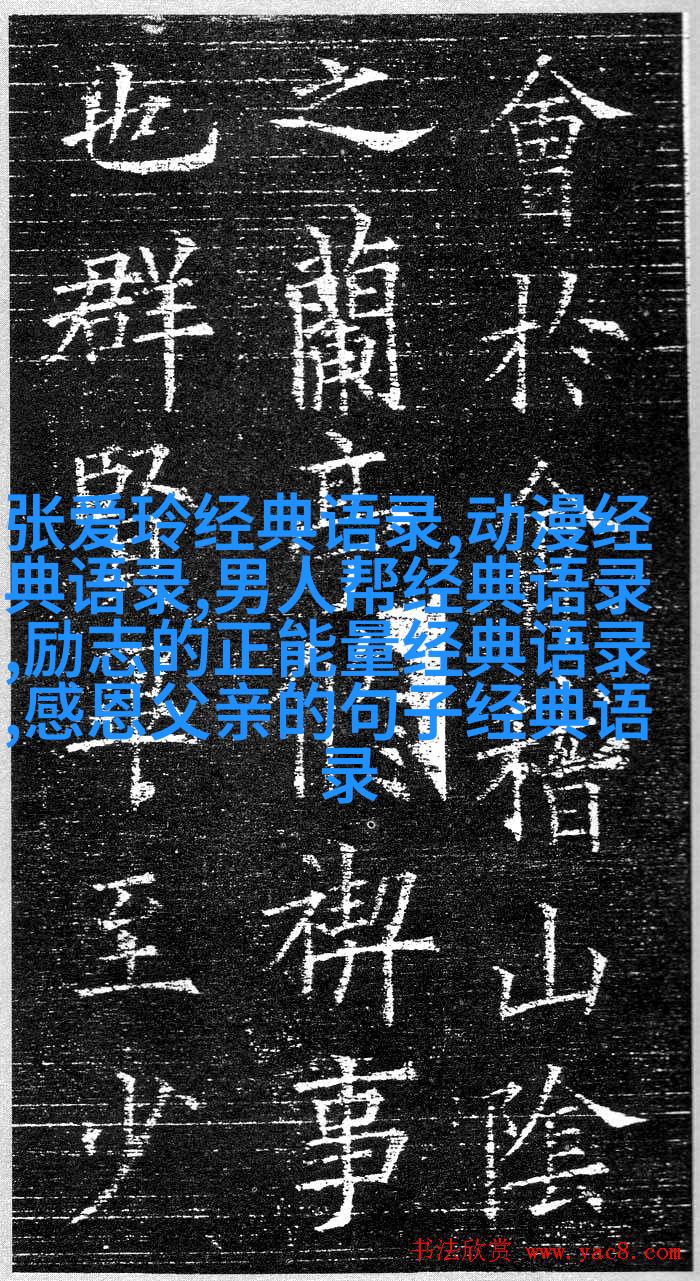 會於會稽山陰
之蘭亭脩禊事
也群賢畢至少
张爱玲经典语录,动漫经
典语录,男人帮经典语录
,励志的正能量经典语录
,感恩父亲的句子经典语
录
书法欣赏 www.yac8.com